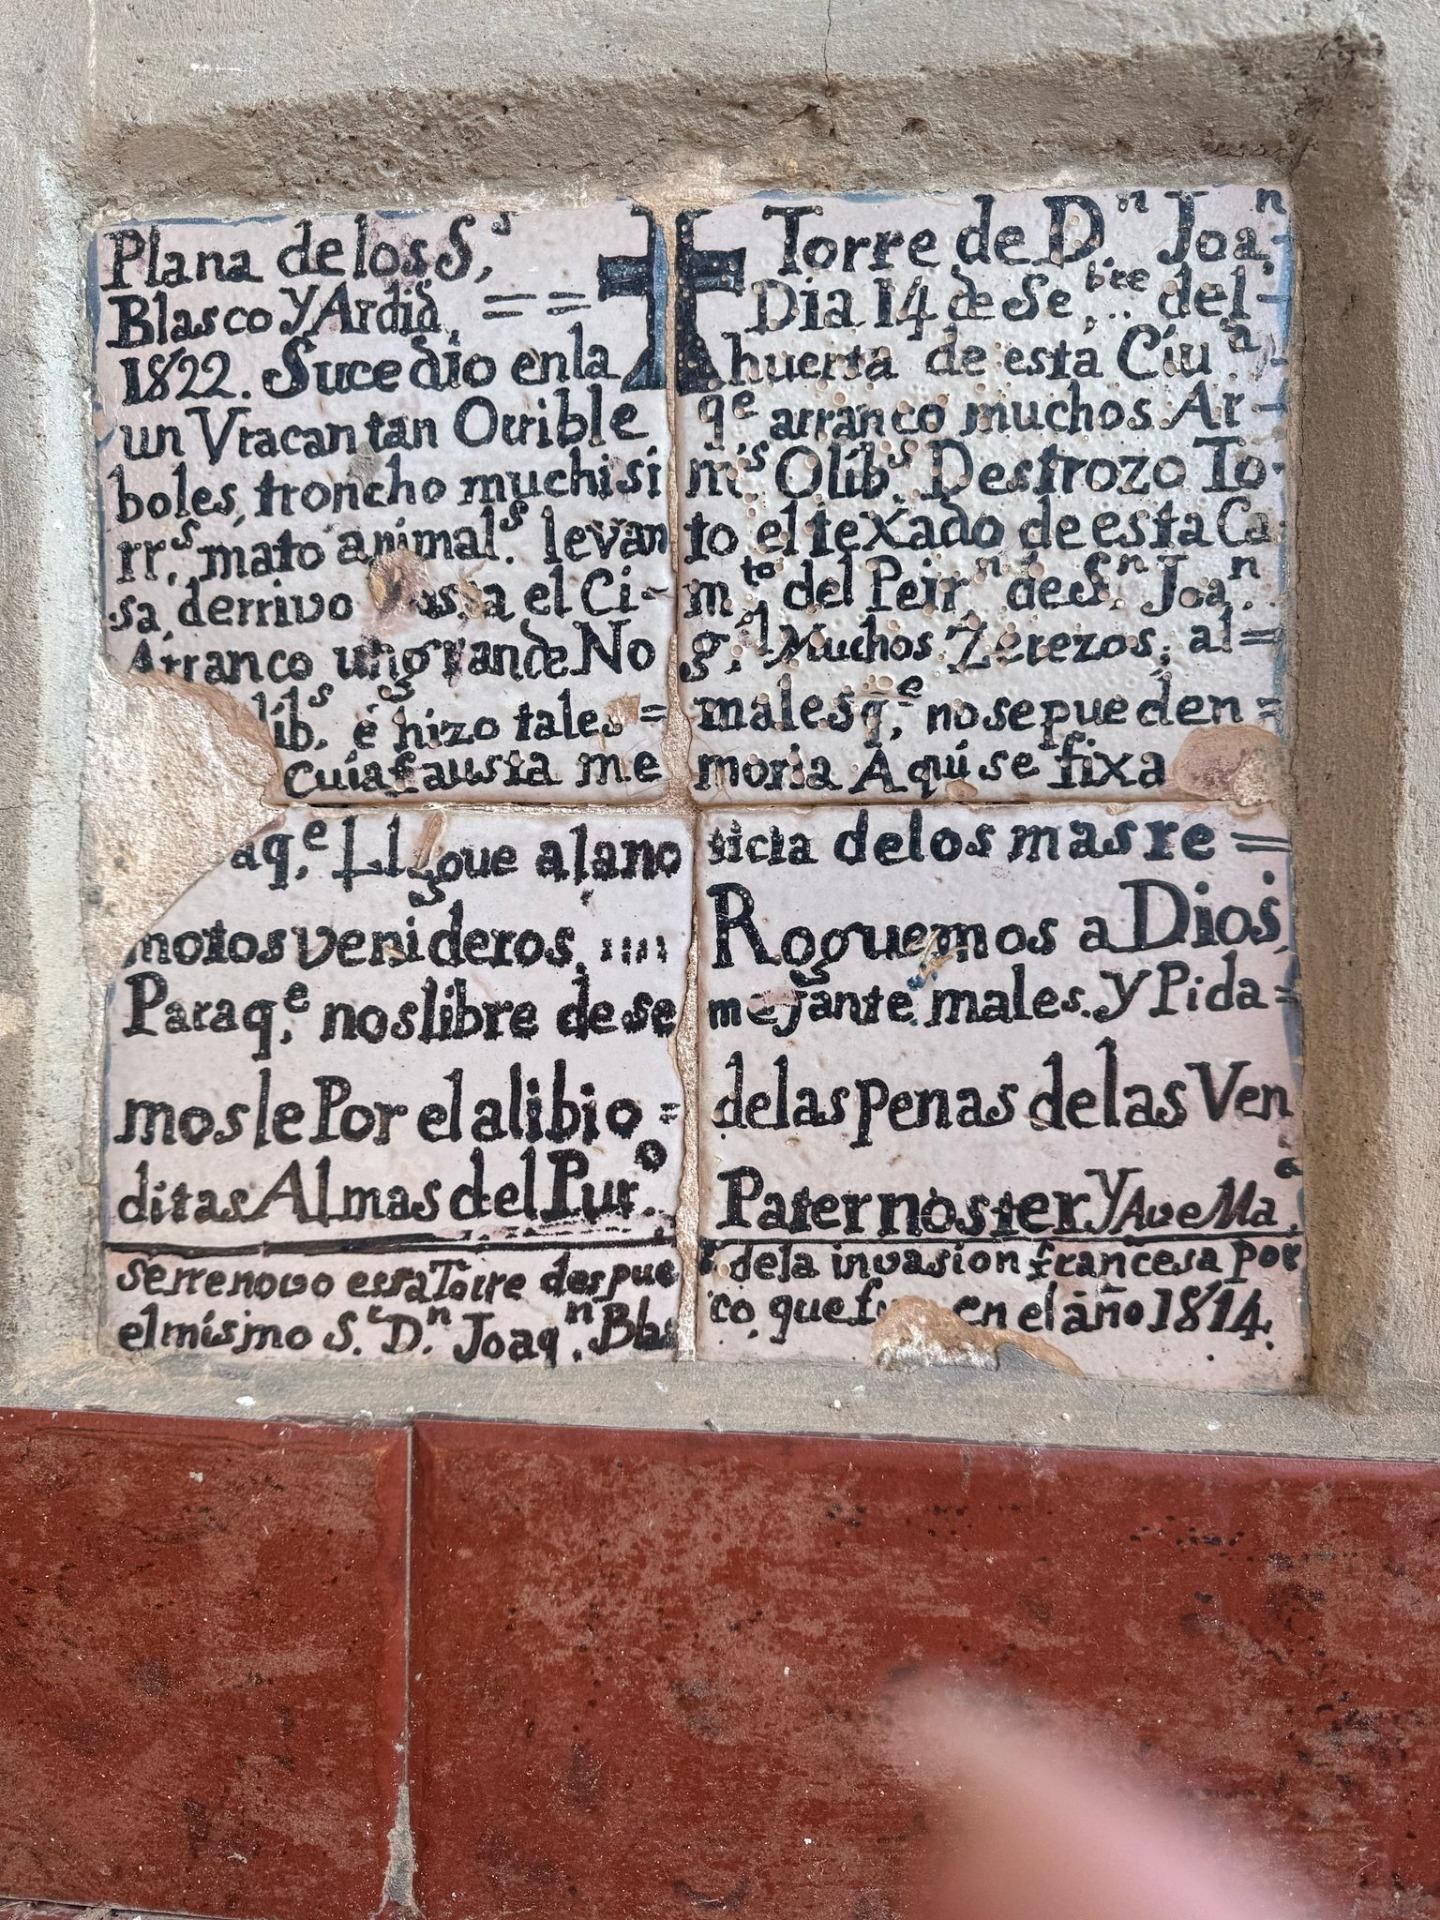 Plana de los S,ˢ Torre de D.ⁿ Joa,ⁿ
Blasco y Ardid, == Dia 14 de Se,ᵇʳᵉ.. del-
1822. Sucedio en la huerta de esta Ciu.ᵃ
un Vracan tan Orrible q.ᵉ arranco muchos Ar-
boles, troncho muchisi m.ˢ Olib.ˢ Destrozo To-
rr,ˢ mato animal.ˢ levan to el texado de esta Ca
sa, derrivo el Ci- m.ᵗᵒ del Peir.ⁿ de S.ⁿ Joa,ⁿ
Arranco un grande No g,ˡ Muchos Zerezos, al=
lib,ˢ é hizo tales = males q,ᵉ no se pueden =
cuia fausta me moria Aqui se fixa
aq,ᵉ Llegue a la no ticia de los mas re =
motos venideros, Roguemos a Dios,
Para q,ᵉ nos libre de se mejante males. y Pida=
mosle Por el alibio = de las penas de las Ven
ditas Almas del Pur.º Pater noster y Ave Ma,ᵃ
Se rrenovo essa Torre despue s de la invasion francesa por
el mismo S.ʳ D.ⁿ Joaq.ⁿ Blas co, que en el año 1814.